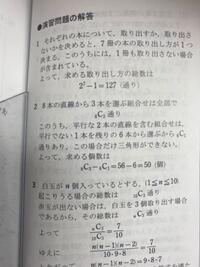 ●演習問題の解答
1 それぞれの本について、取り出すか、取り出さ
ないかを決めると、1冊の本の取り出し方が1つ
決まる。このうちには、1冊も取り出さない場合
が含まれている。
よって、求める取り出し方の総数は
2⁷−1=127(通り)
2 8本の直線から3本を選ぶ組合せは全部で
₈C₃ 通り
このうち、平行な2本の直線を含む組合せは、
平行でない1本を残りの6本から選ぶから ₆C₁
通りあり、この場合だけ三角形ができない。
よって、求める個数は
₈C₃−₆C₁=56−6=50(個)
3 白玉が n 個入っているとする。(1≦n≦10)
起こりうる場合の総数は ₁₀C₃ 通り
赤玉が出ない場合は、白玉を3個取り出す場合
であるから、その総数は ₙC₃ 通り
よって ₙC₃/₁₀C₃=7/10
ゆえに n(n−1)(n−2)/10・9・8=7/10
n(n−1)(n−2)=9・8・7